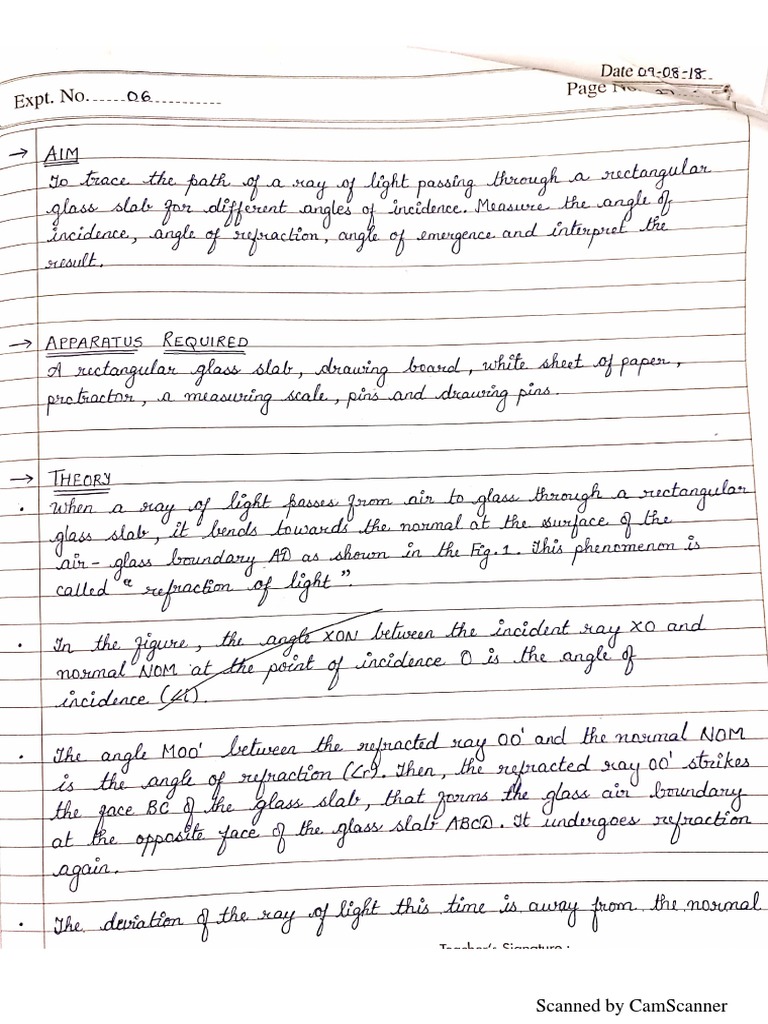 Date 09-08-18
Expt. No. 06
Page No.
→ AIM
To trace the path of a ray of light passing through a rectangular
glass slab for different angles of incidence. Measure the angle of
incidence, angle of refraction, angle of emergence and interpret the
result.
→ APPARATUS REQUIRED
A rectangular glass slab, drawing board, white sheet of paper,
protractor, a measuring scale, pins and drawing pins.
→ THEORY
• When a ray of light passes from air to glass through a rectangular
glass slab, it bends towards the normal at the surface of the
air-glass boundary AD as shown in the Fig.1. This phenomenon is
called "refraction of light".
• In the figure, the angle XON between the incident ray XO and
normal NOM at the point of incidence O is the angle of
incidence (∠i).
• The angle MOO' between the refracted ray OO' and the normal NOM
is the angle of refraction (∠r). Then, the refracted ray OO' strikes
the face BC of the glass slab, that forms the glass air boundary
at the opposite face of the glass slab ABCD. It undergoes refraction
again.
• The deviation of the ray of light this time is away from the normal
Teacher's Signature :
Scanned by CamScanner